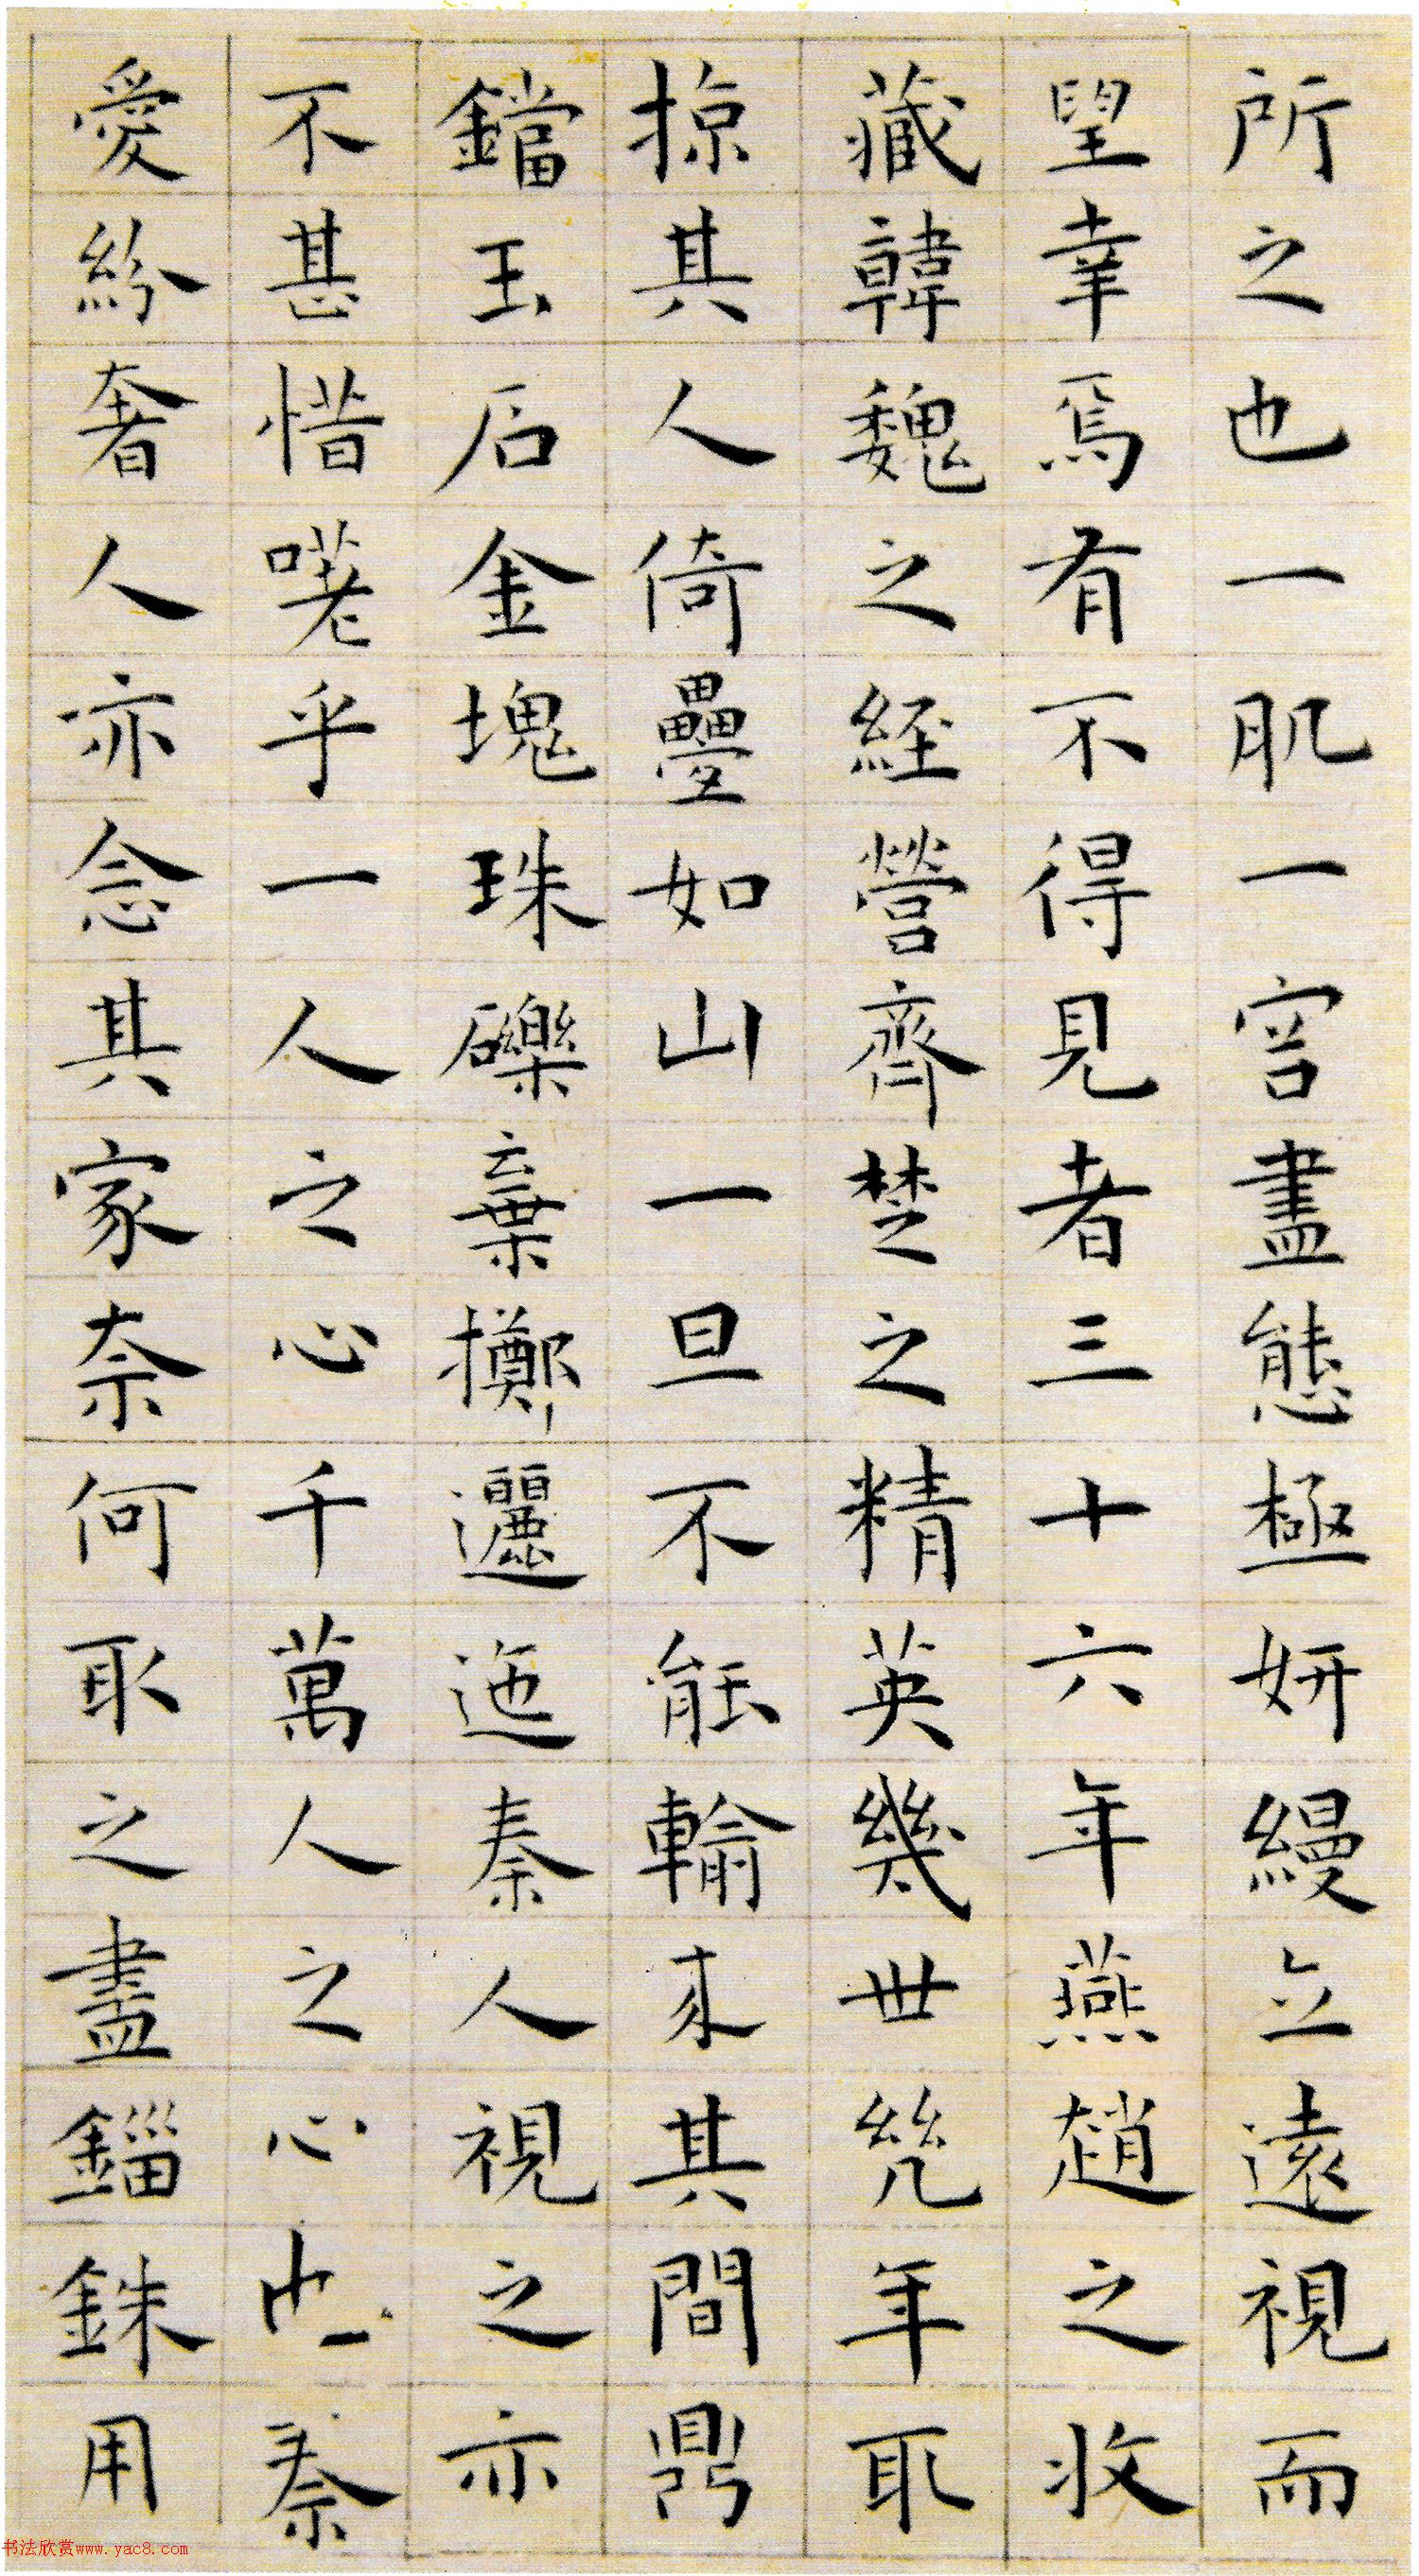 所之也一肌一容盡態極妍縵立遠視而
望幸焉有不得見者三十六年燕趙之收
藏韓魏之經營齊楚之精英幾世幾年取
掠其人倚疊如山一旦不能輸來其間鼎
鐺玉石金塊珠礫棄擲邐迤秦人視之亦
不甚惜嗟乎一人之心千萬人之心也秦
愛紛奢人亦念其家奈何取之盡錙銖用
书法欣赏www.yac8.com